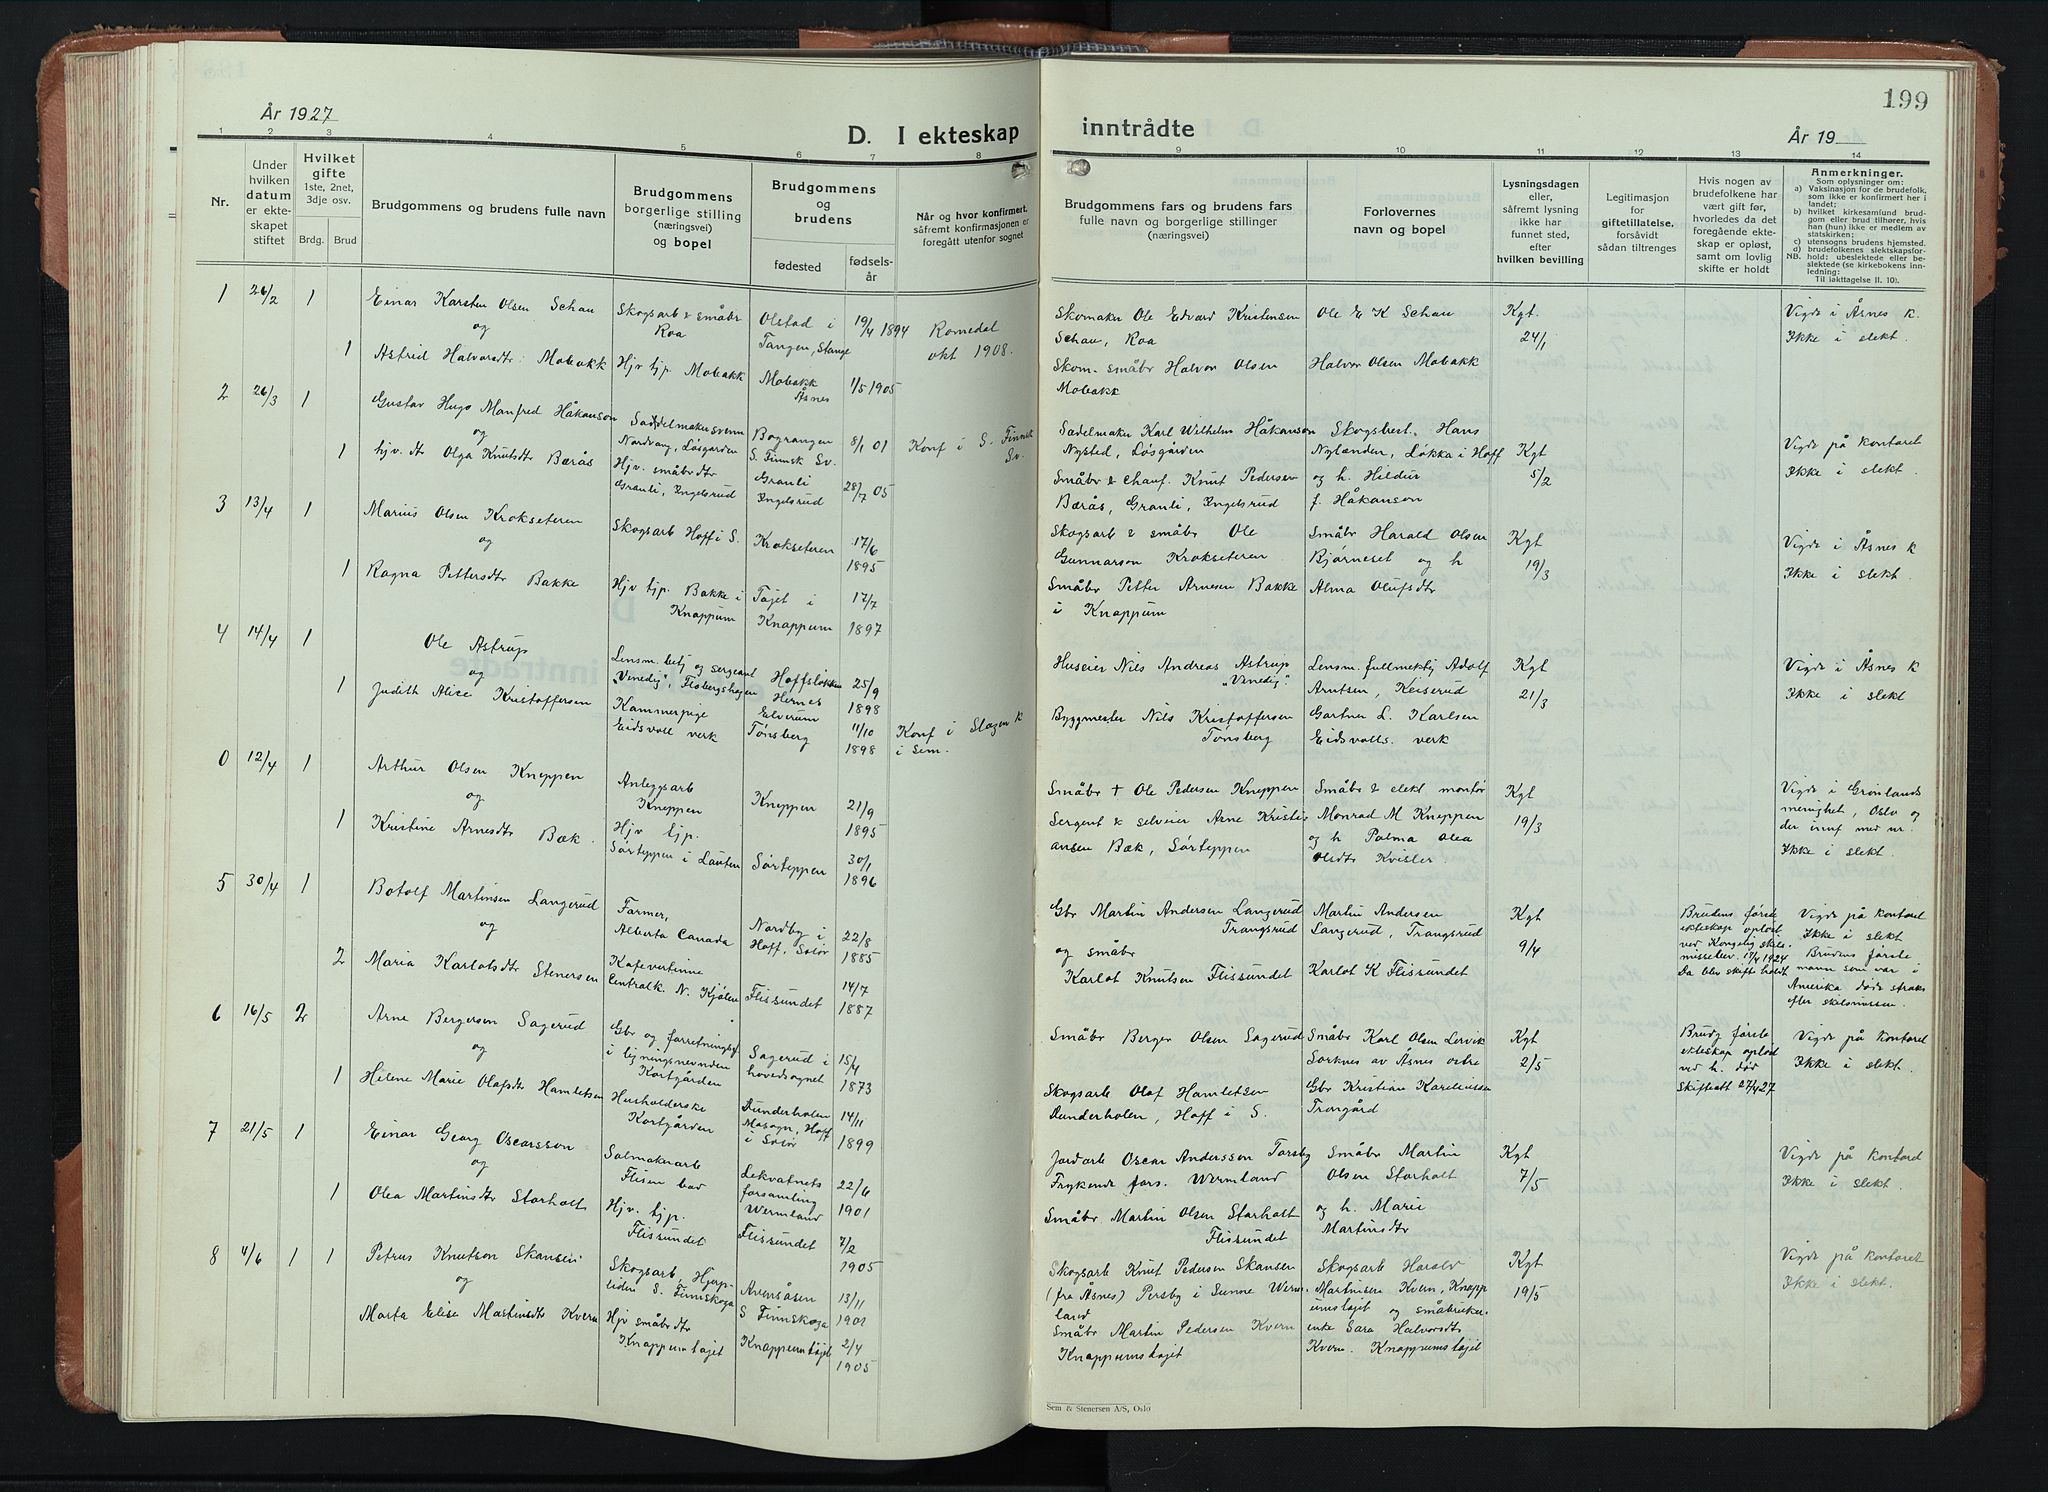 År 1927
D. I ekteskap
1 2 3 4 5 6 7 8
Nr.
Under hvilken datum er ekteskapet stiftet
Hvilket gifte
1ste, 2net, 3dje osv.
Brdg. Brud
Brudgommens og brudens fulle navn
Brudgommens borgerlige stilling (næringsvei) og bopel
Brudgommens og brudens
fødested
fødselsår
Når og hvor konfirmert, såfremt konfirmasjonen er foregått utenfor sognet
1 26/2 1 Einar Karsten Olsen Schau Skogsarb & småbr Roa Olstad i Tangen, Stange 19/4 1894 Romedal okt 1908.
og
1 Astrid Halvorsdtr. Mobakk Hjv tjp. Mobakk Mobakk Åsnes 1/5 1905
2 26/3 1 Gustav Hugo Manfred Håkanson Saddelmakersvenn Nordvang, Løsgården Bograngen S. Finnsk Sv. 8/1 01 Konf i S. Finnsk Sv.
og
1 hjv. dtr Olga Knutsdtr Bærås Hjv. småbrdtr Granli, Engelsrud Granli Engelsrud 28/7 05
3 13/4 1 Marius Olsen Krokseteren Skogsarb Hoff i S. Krokseteren 17/6 1895
og
1 Ragna Pettersdtr Bakke Hjv tjp. Bakke i Knappum Tøjet i Knappum 17/7 1897
4 14/4 1 Ole Astrup Lensm. betj og sergeant "Venedig", Flisbergshagen Hoffsløkken Hernes Elverum 25/9 1898
og
1 Judith Alice Kristoffersen Kammerpige Eidsvoll verk Tønsberg 11/10 1898 Konf i Slagen k i Sem.
0 12/4 1 Arthur Olsen Kneppen Anleggsarb Kneppen Kneppen 21/9 1895
og
1 Kristine Arnesdtr Bæk. Hjv tjp. Sørteppen i Lauten Sørteppen 30/1 1896
5 30/4 1 Botolf Martinsen Langerud Farmer, Alberta Canada Nordby i Hoff, Solør 22/8 1885
og
2 Maria Karlotsdtr Stenersen Kafevertinne Centralk. N. Kjølen Flissundet 14/7 1887
6 16/5 2 Arne Bergersen Sagerud Gbr og forretningsf. i ligningsnevnden Kortgården Sagerud i hovedsognet 15/4 1873
og
1 Helene Marie Olafsdtr Hamletsen Husholderske Kortgården Dunderholen Masogn, Hoff i Solør 14/11 1899
7 21/5 1 Einar Georg Oscarsson Salmakerarb Flisen bad Lekvatnets forsamling Wermland 22/6 1901
og
1 Olea Martinsdtr Storholt Hjv. tjp. Flissundet Flissundet 7/2 1905
8 4/6 1 1 Petrus Knutson Skansen Skogsarb, Hjerpliden S. Finnskoga Avensåsen S Finnskoga 13/11 1901
og
Marta Elise Martinsdtr Kvern Hjv småbrdtr Knappumstøjet Knappumstøjet 2/4 1905
199
inntrådte
År 19
9 10 11 12 13 14
Brudgommens fars og brudens fars fulle navn og borgerlige stillinger (næringsvei)
Forlovernes navn og bopel
Lysningsdagen eller, såfremt lysning ikke har funnet sted, efter hvilken bevilling
Legitimasjon for giftetillatelse, forsåvidt sådan tiltrenges
Hvis nogen av brudefolkene har vært gift før, hvorledes da det foregående ekteskap er opløst, samt om lovlig skifte er holdt
Anmerkninger.
Som oplysninger om:
a) Vaksinasjon for de brudefolk, som ikke er konfirmert her i landet;
b) hvilket kirkesamfund brudgom eller brud tilhører, hvis han (hun) ikke er medlem av statskirken;
c) utensogns brudens hjemsted.
d) brudefolkenes slektskapsforhold: ubeslektede eller beslektede (se kirkebokens innledning:
NB. Til iakttagelse II. 10).
Skomaker Ole Edvard Kristensen Schau, Roa Ole E K Schau Kgt. 24/1 Vigde i Åsnes k. Ikke i slekt.
Skom. småbr Halvor Olsen Mobakk Halvor Olsen Mobakk
Sadelmaker Karl Wilhelm Håkanson Nysted, Løsgården Skogsbest. Hans Nylænden, Løkka i Hoff Kgt 5/2 Vigde på kontoret Ikke i slekt.
Småbr & chauf. Knut Pedersen Bærås, Granli, Engelsrud og h. Hildur f. Håkanson
Skogsarb & småbr Ole Gunnarson Krokseteren Småbr Harald Olsen Bjørneset og h Kgt 19/3 Vigde i Åsnes k Ikke i slekt.
Småbr Petter Arnesen Bakke i Knappum Alma Olufsdtr
Huseier Nils Andreas Astrup "Venedig". Lensm. fullmektig Adolf Arntsen, Keiserud Kgt 21/3 Vigde i Åsnes k Ikke i slekt
Byggmester Nils Kristoffersen Tønsberg Gartner L. Karlsen Eidsvolls verk
Småbr + Ole Pedersen Kneppen Småbr & elekt montør Kgt 19/3 Vigde i Grønlands menighet, Oslo og der innf med nr. Ikke i slekt.
Sergent & selveier Arne Kristiansen Bæk, Sørteppen Monrad M Kneppen og h Palma Olea Olsdtr Kvisler.
Gbr Martin Andersen Langerud Trangsrud Martin Andersen Langerud, Trangsrud Kgt 9/4 Brudens første ekteskap opløst ved Kongelig skilsmissebev. 17/4 1924 Da blev skifte holdt Vigde på kontoret Ikke i slekt Brudens første mann som var i Amerika døde straks efter skilsmissen.
og småbr Karlot Knutsen Flissundet Karlot K Flissundet
Småbr Berger Olsen Sagerud Småbr Karl Olsen Lervik Sorknes av Åsnes østre Kgt 2/5 Brudg første ekteskap opløst ved h. død Skifteatt 27/4 27 Vigde på kontoret Ikke i slekt.
Skogsarb Olaf Hamletsen Dunderholen, Hoff i S. Gbr Kristian Kareliussen Trongård
Jordarb Oscar Anderssen Torsby Frykende fors. Wermland Småbr Martin Olsen Storholt Kgt 7/5 Vigde på kontord Ikke i slekt.
Småbr Martin Olsen Storholt Flissundet og h. Marie Martinsdtr
Skogsarb Knut Pedersen Skansen (fra Åsnes) Persby i Sunne Wermland Skogsarb Harald Martinsen Kvern, Knappumstøjet og småbrukerenke Sara Halvorsdtr Kvern. Knappumstøjet Kgt 19/5 Vigde på kontoret Ikke i slekt.
Småbr Martin Pedersen Kvern Knappumstøjet
Sem & Stenersen A/S, Oslo